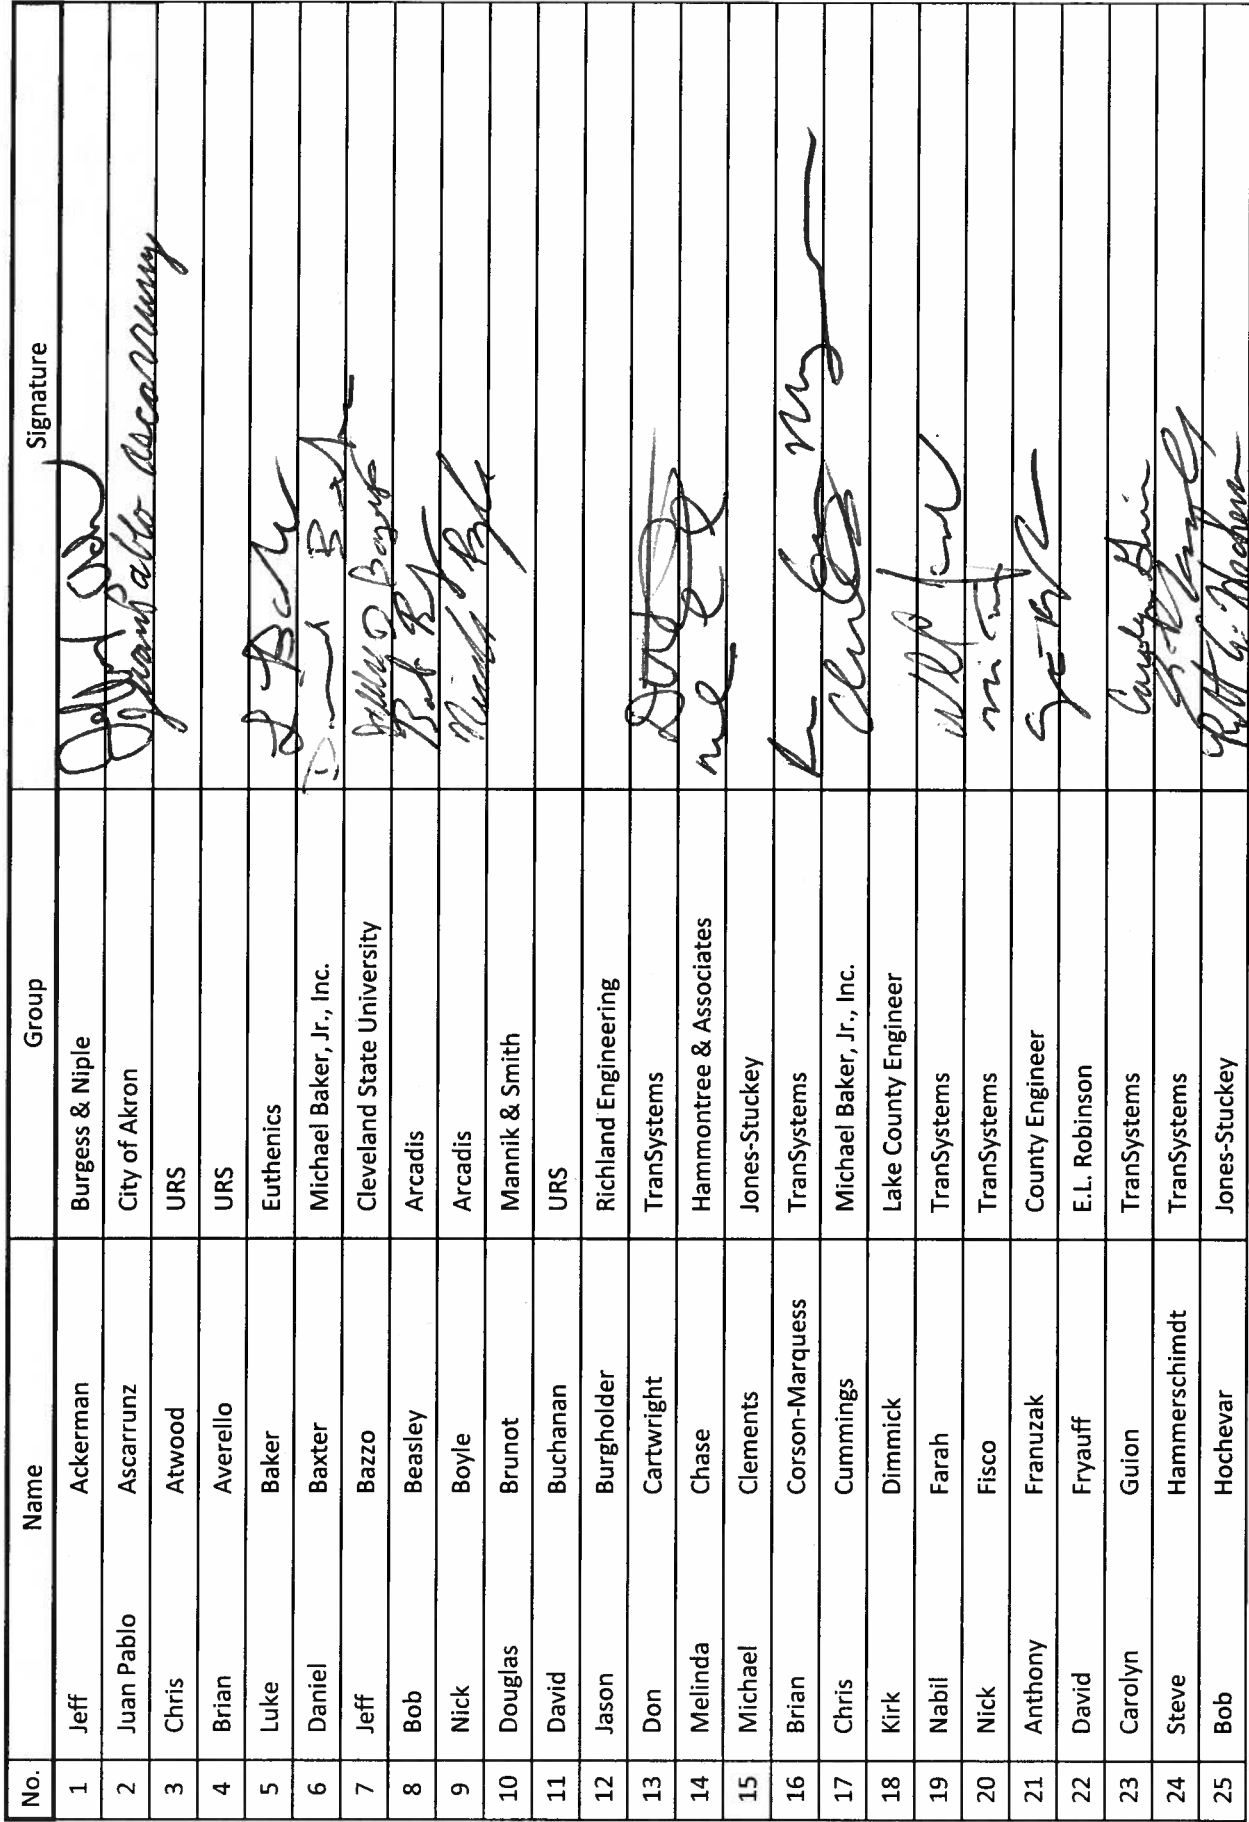 No. Name Group Signature
1 Jeff Ackerman Burgess & Niple
2 Juan Pablo Ascarrunz City of Akron Juan Pablo Ascarrunz
3 Chris Atwood URS
4 Brian Averello URS
5 Luke Baker Euthenics L Bake
6 Daniel Baxter Michael Baker, Jr., Inc.
7 Jeff Bazzo Cleveland State University
8 Bob Beasley Arcadis
9 Nick Boyle Arcadis
10 Douglas Brunot Mannik & Smith
11 David Buchanan URS
12 Jason Burgholder Richland Engineering
13 Don Cartwright TranSystems
14 Melinda Chase Hammontree & Associates
15 Michael Clements Jones-Stuckey
16 Brian Corson-Marquess TranSystems
17 Chris Cummings Michael Baker, Jr., Inc.
18 Kirk Dimmick Lake County Engineer
19 Nabil Farah TranSystems
20 Nick Fisco TranSystems
21 Anthony Franuzak County Engineer
22 David Fryauff E.L. Robinson
23 Carolyn Guion TranSystems Carolyn Guion
24 Steve Hammerschimdt TranSystems
25 Bob Hochevar Jones-Stuckey